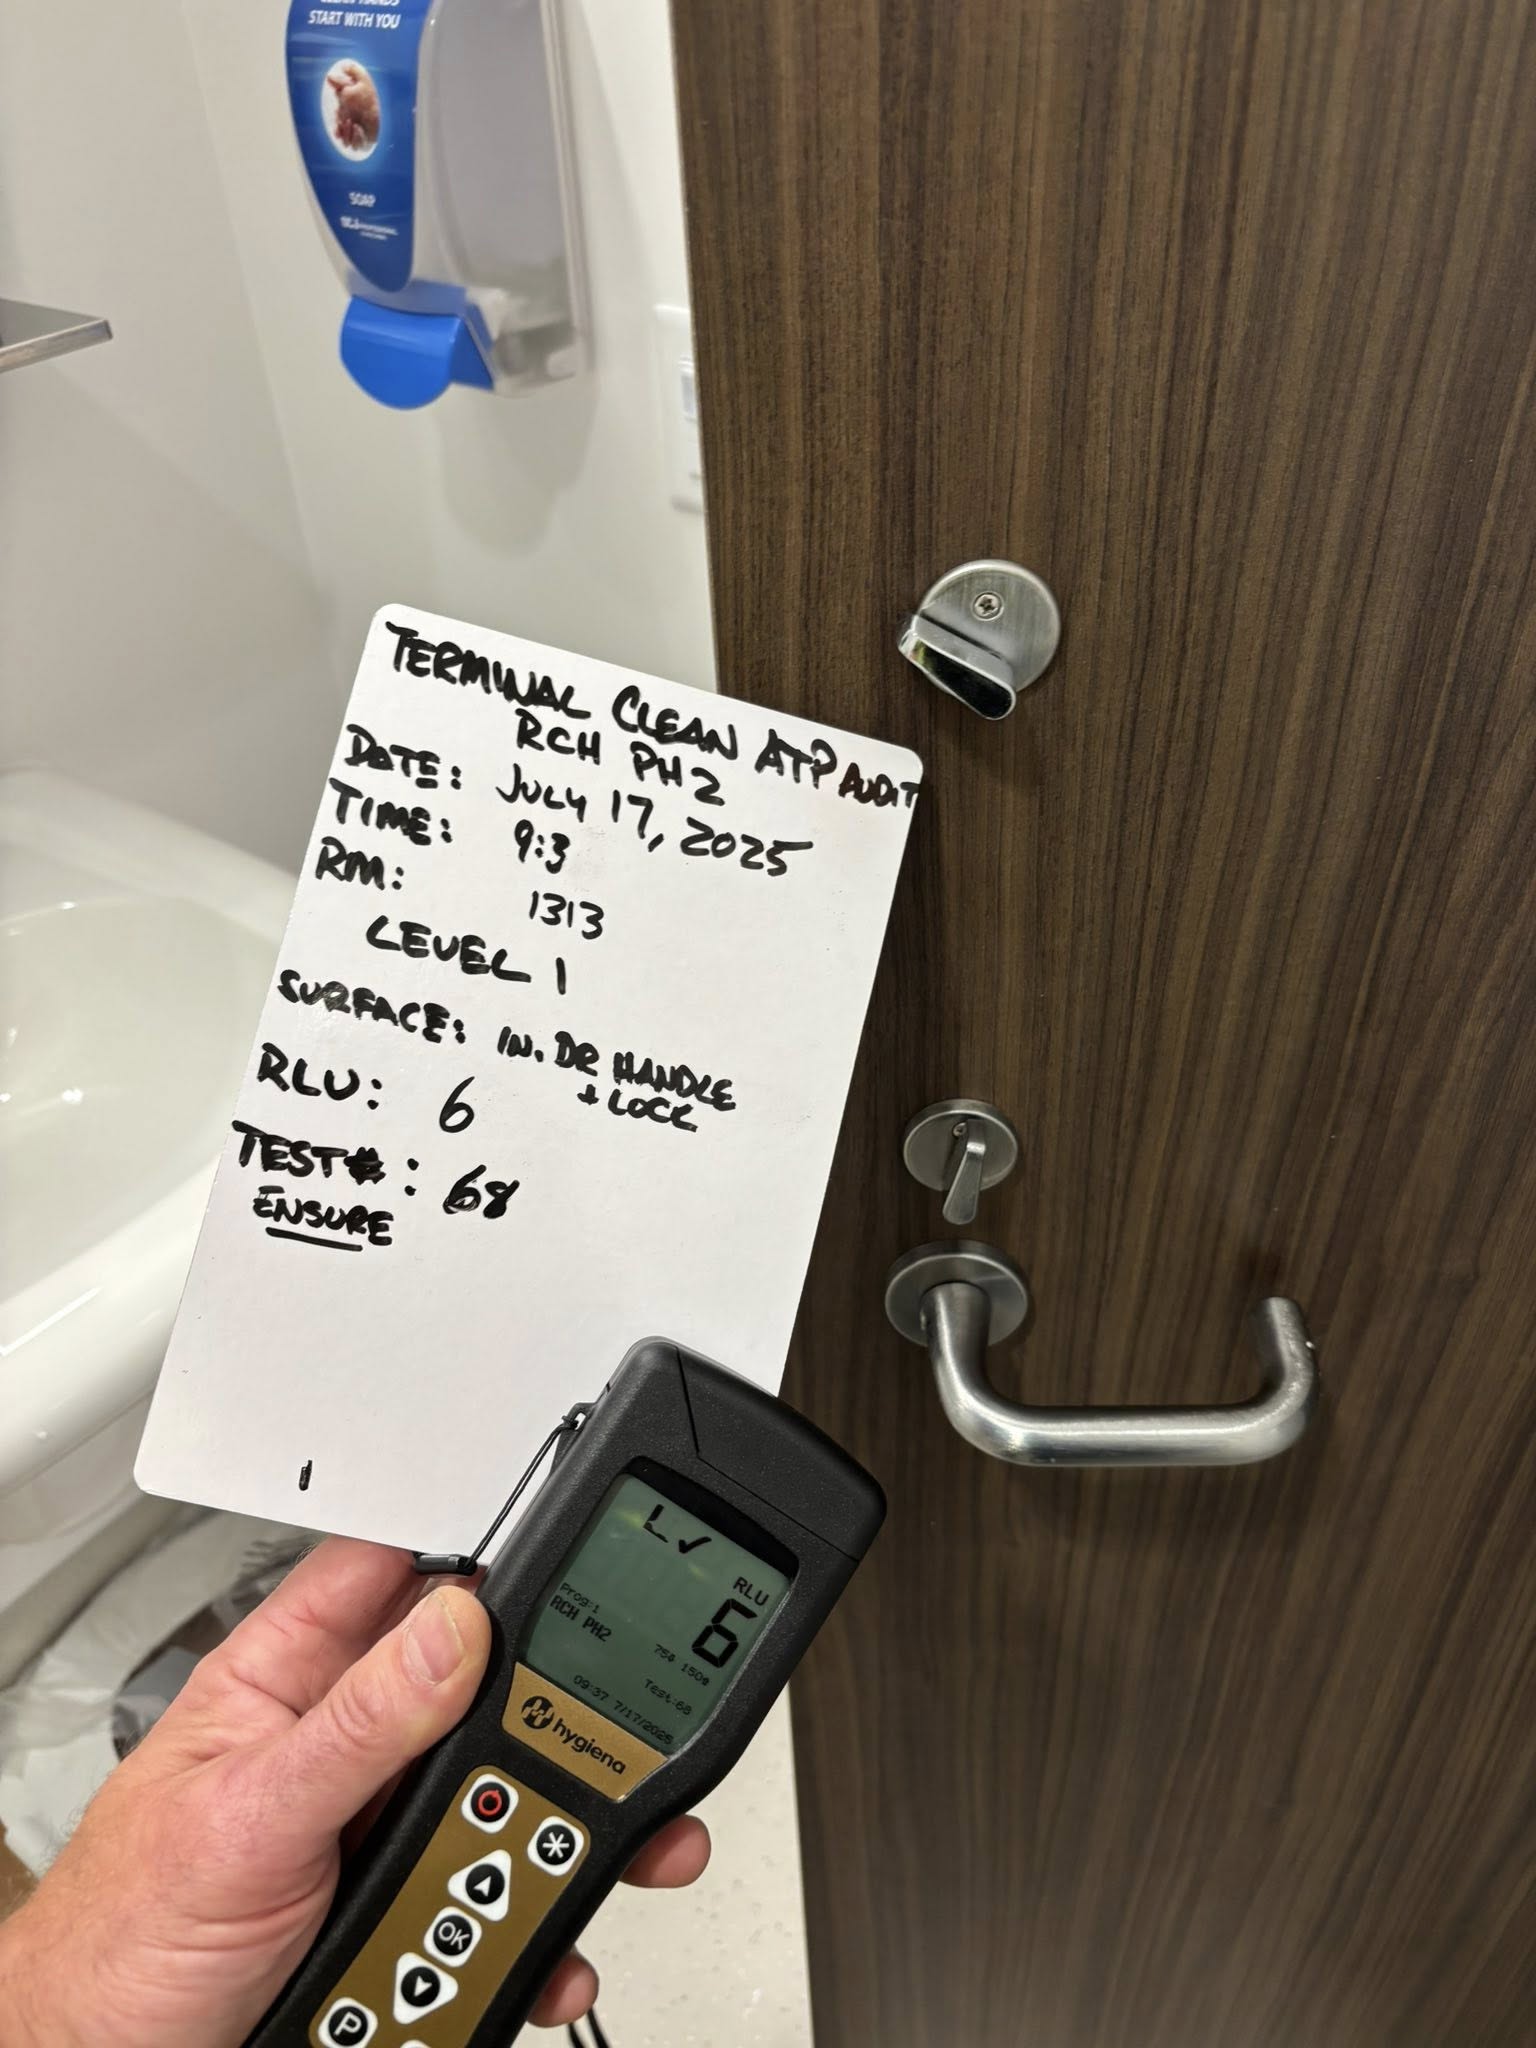 CLEAN HANDS
START WITH YOU
SOAP
TERMINAL CLEAN ATP AUDIT
RCH PH2
DATE: JULY 17, 2025
TIME: 9:3
RM: 1313
LEVEL 1
SURFACE: IN. DR HANDLE
+ LOCK
RLU: 6
TEST#: 68
ENSURE
L✓
RLU
6
Prog:1
RCH PH2
Test:68
09:37 7/17/2025
hygiena
OK
P